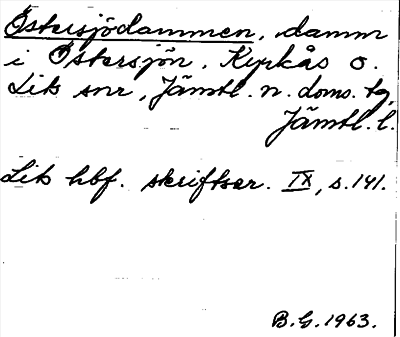 Östersjödammen, damm
i Östersjön, Kyrkås o.
Lits snr, Jämtl. n. doms. tg,
Jämtl. l.
Lits hbf. skriftser. IX, s. 141.
B.G. 1963.